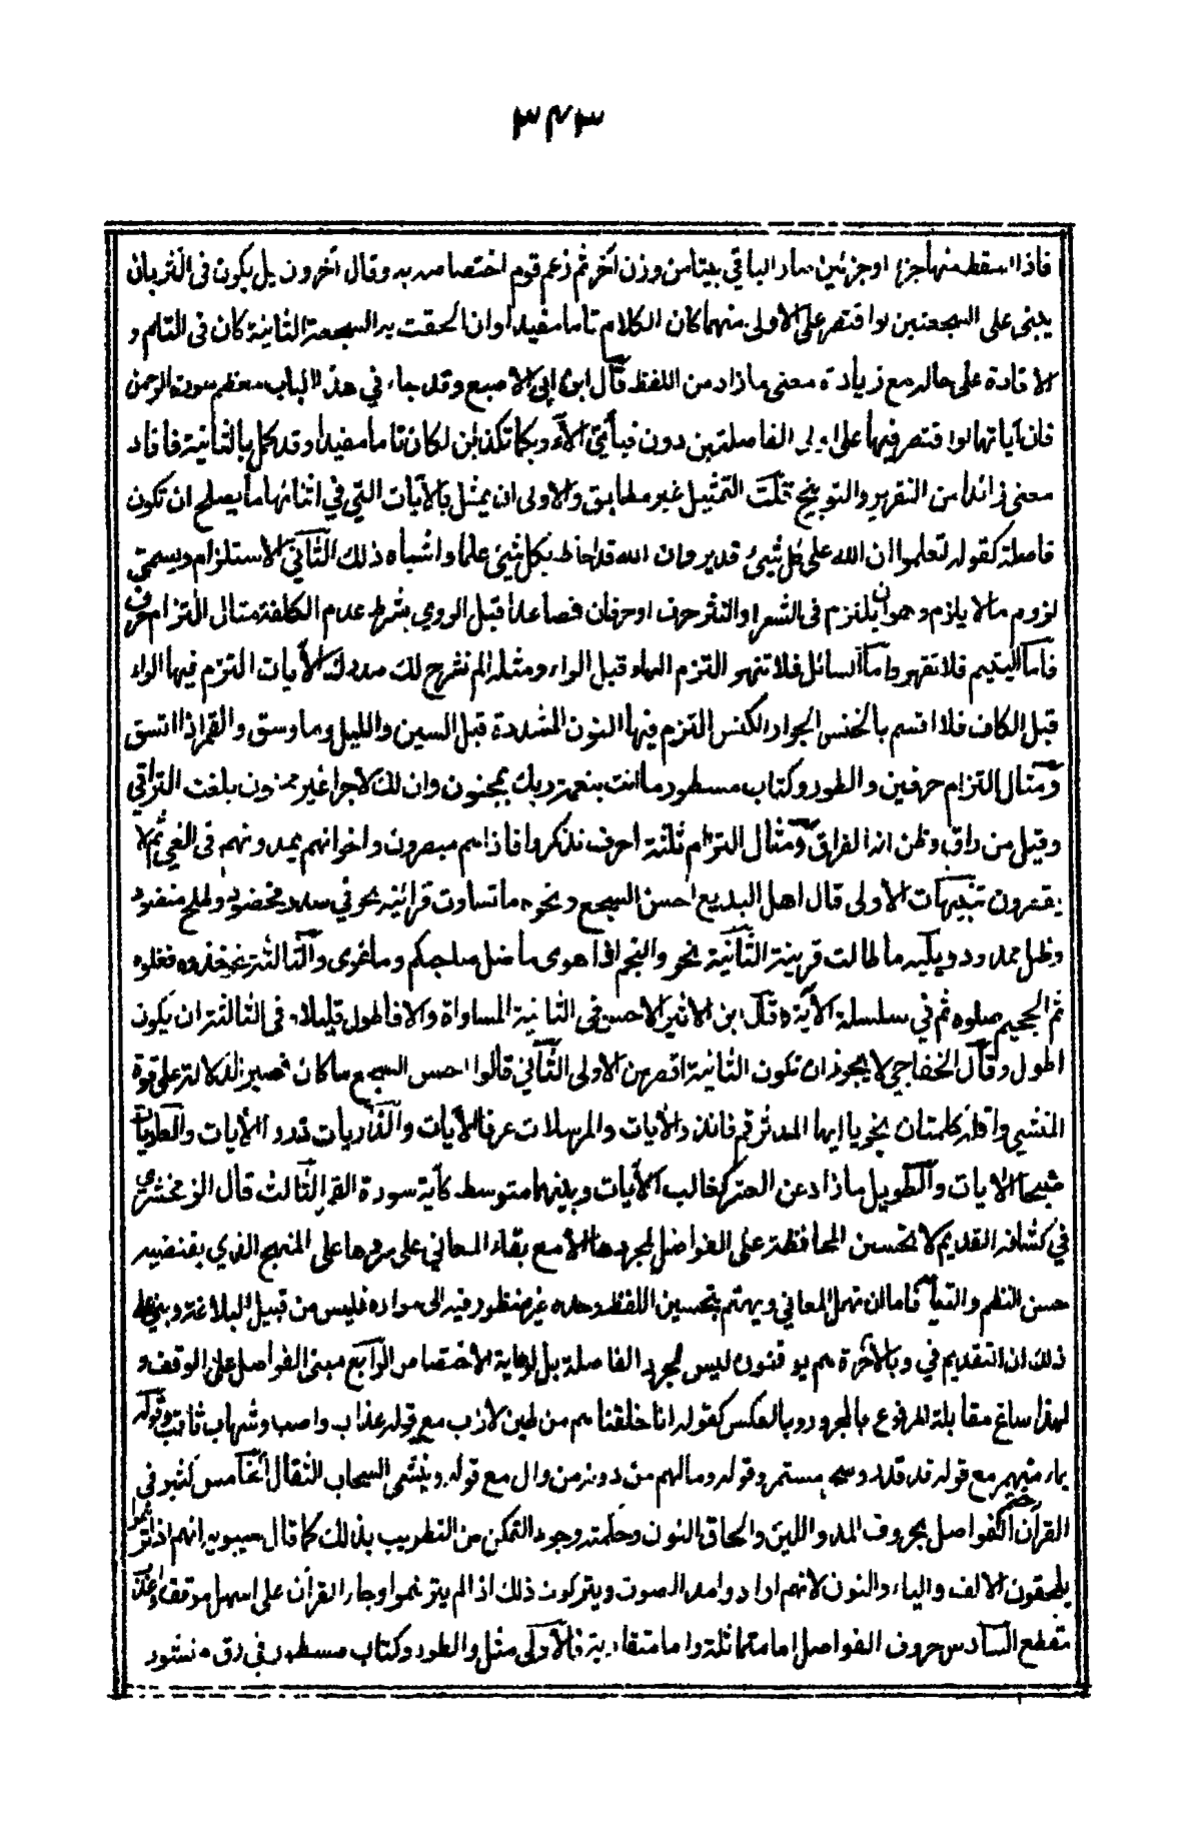 ٣٤٣
فاذا اسقط منها جزء او جزئين صار الباقي بيتا من وزن آخر ثم زعم قوم اختصاصه به وقال آخرون بل يكون في النثر بان
يبنى على السجعتين لو اقتصر على الاولى منهما كان الكلام تاما مفيدا وان الحقت به السجعة الثانية كان في التمام و
الافادة على حاله مع زيادة معنى ما زاد من اللفظ قال ابن ابي الاصبع وقد جاء في هذا الباب معظم سورة الرحمن
فان آياتها لو اقتصر فيها على اولى الفاصلتين دون فبأي آلاء ربكما تكذبان لكان تاما مفيدا وقد كمل بالثانية فافاد
معنى زائدا من التقرير والتوبيخ قلت التمثيل غير مطابق والاولى ان يمثل بالآيات التي في اثنائها ما يصلح ان تكون
فاصلة كقوله لتعلموا ان الله على كل شيئ قدير وان الله قد احاط بكل شيئ علما واشباه ذلك الثاني الاستلزام ويسمى
لزوم ما لا يلزم وهو ان يلتزم في الشعر او النثر حرف او حرفان فصاعدا قبل الروي بشرط عدم الكلفة مثال التزام حرف
فاما اليتيم فلا تقهر واما السائل فلا تنهر التزم الهاء قبل الراء ومثله الم نشرح لك صدرك الآيات التزم فيها الراء
قبل الكاف فلا اقسم بالخنس الجوار الكنس التزم فيها النون المشددة قبل السين والليل وما وسق والقمر اذا اتسق
ومثال التزام حرفين والطور وكتاب مسطور ما انت بنعمة ربك بمجنون وان لك لاجرا غير ممنون بلغت التراقي
وقيل من راق وظن انه الفراق ومثال التزام ثلثة احرف تذكروا فاذا هم مبصرون واخوانهم يمدونهم في الغي ثم لا
يقصرون تنبيهات الاولى قال اهل البديع احسن السجع ونحوه ما تساوت قرائنه نحو في سدر مخضود وطلح منضود
وظل ممدود ويليه ما طالت قرينة الثانية نحو والنجم اذا هوى ما ضل صاحبكم وما غوى والثالثة نحو خذوه فغلوه
ثم الجحيم صلوه ثم في سلسلة الآية وقال ابن الاثير الاحسن في الثانية المساواة والا فاطول قليلا وفي الثالثة ان يكون
اطول وقال الخفاجي لا يجوز ان تكون الثانية اقصر من الاولى الثاني قالوا احسن السجع ما كان قصيرا لدلالته على قوة
المنشي واقله كلمتان نحو يا ايها المدثر قم فانذر الآيات والمرسلات عرفا الآيات والذاريات ذروا الآيات والعاديات
ضبحا الآيات والطويل ما زاد عن العشر كغالب الآيات وبينهما متوسط كآية سورة القمر الثالث قال الزمخشري
في كشافه القديم لا تحسن المحافظة على الفواصل لمجردها الا مع بقاء المعاني على سردها على المنهج الذي يقتضيه
حسن النظم والتيام فاما ان تهمل المعاني ويهتم بتحسين اللفظ وحده غير منظور فيه الى مواده فليس من قبيل البلاغة وبنى على
ذلك ان التقديم في وبالآخرة هم يوقنون ليس لمجرد الفاصلة بل لرعاية الاختصاص الرابع مبنى الفواصل على الوقف و
لهذا ساغ مقابلة المرفوع بالمجرور وبالعكس كقوله انا خلقناهم من طين لازب مع قوله عذاب واصب وشهاب ثاقب وقوله
بماء منهمر مع قوله قد قدر وسحر مستمر وقوله وما لهم من دونه من وال مع قوله وينشئ السحاب الثقال الخامس كثير في
القرآن ختم الفواصل بحروف المد واللين والحاق النون وحكمته وجود التمكن من التطريب بذلك كما قال سيبويه انهم اذا ترنموا
يلحقون الالف والياء والنون لانهم ارادوا مد الصوت ويتركون ذلك اذا لم يترنموا وجاء القرآن على اسهل موقف واعذب
مقطع السادس حروف الفواصل اما متماثلة واما متقاربة فالاولى مثل والطور وكتاب مسطور في رق منشور